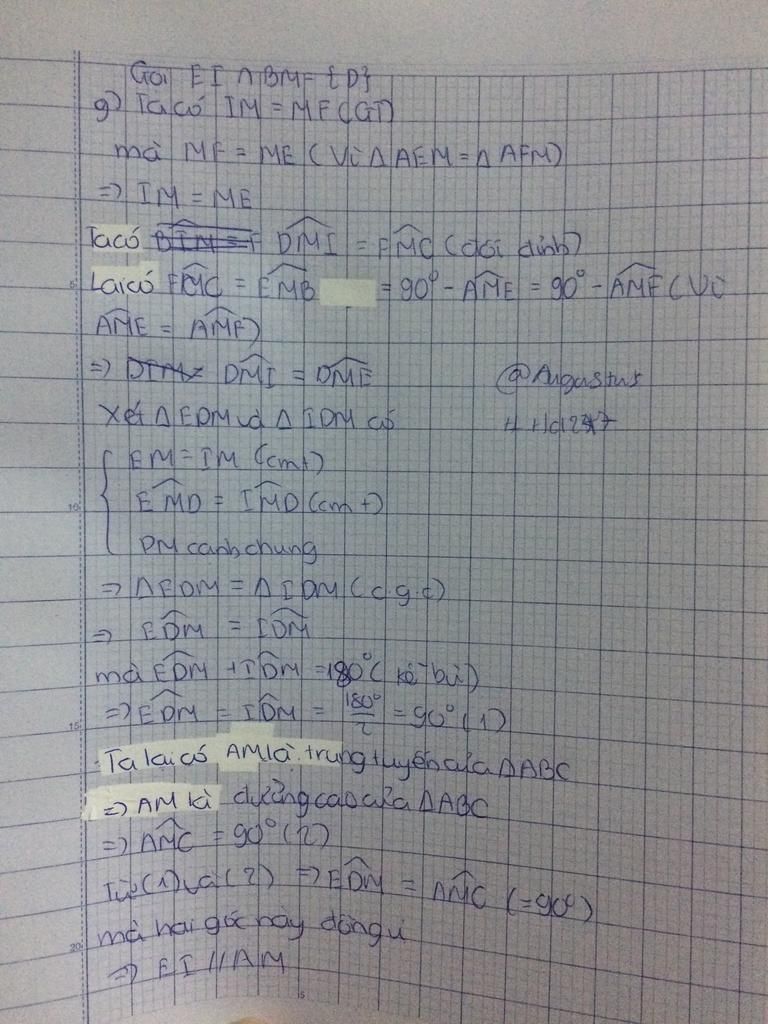 Gọi EI ∩ BM = {D}
g) Ta có IM = MF (GT)
mà MF = ME (Vì ΔAEM = ΔAFM)
=> IM = ME
Ta có DMI = FMC (đối đỉnh)
Lại có FMC = EMB = 90° - AME = 90° - AMF (Vì
AME = AMF)
=> DMI = DME
@Augustus
Xét ΔEDM và ΔIDM có
EM = IM (cmt)
EMD = IMD (cmt)
DM cạnh chung
=> ΔEDM = ΔIDM (c.g.c)
=> EDM = IDM
mà EDM + IDM = 180° (kề bù)
=> EDM = IDM = 180°/2 = 90° (1)
Ta lại có AM là trung tuyến của ΔABC
=> AM là đường cao của ΔABC
=> AMC = 90° (2)
Từ (1) và (2) => EDM = AMC (=90°)
mà hai góc này đồng vị
=> EI // AM
5
10
15
20